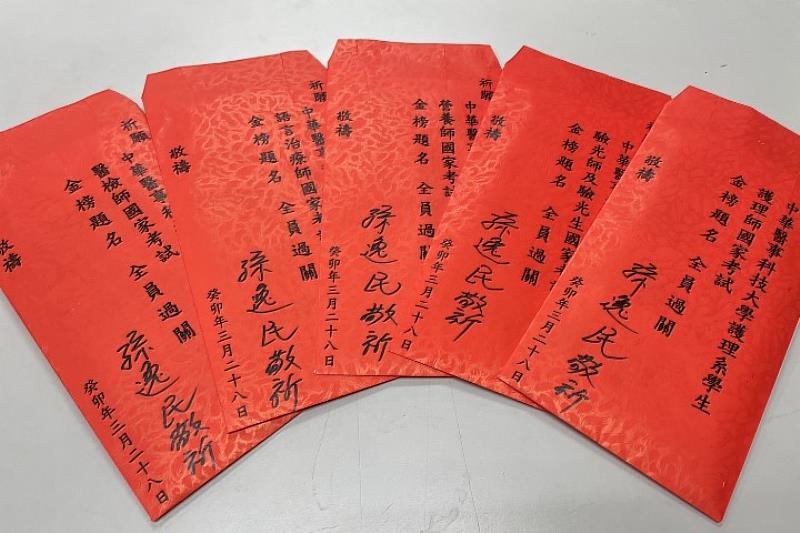 祈願
中華醫事科
醫檢師國家考試
金榜題名 全員過關
敬禱
孫逸民敬祈
癸卯年三月二十八日
祈願
中華醫事
語言治療師國家考
金榜題名 全員過關
敬禱
孫逸民敬祈
癸卯年三月二十八日
祈願
中華醫
營養師國家考試
金榜題名 全員過
敬禱
孫逸民敬祈
中華醫事
驗光師及驗光生國家考
金榜題名 全員過關
敬禱
孫逸民敬祈
癸卯年三月二十八
中華醫事科技大學護理系學生
護理師國家考試
金榜題名 全員過關
敬禱
孫逸民敬祈
癸卯年三月二十八日